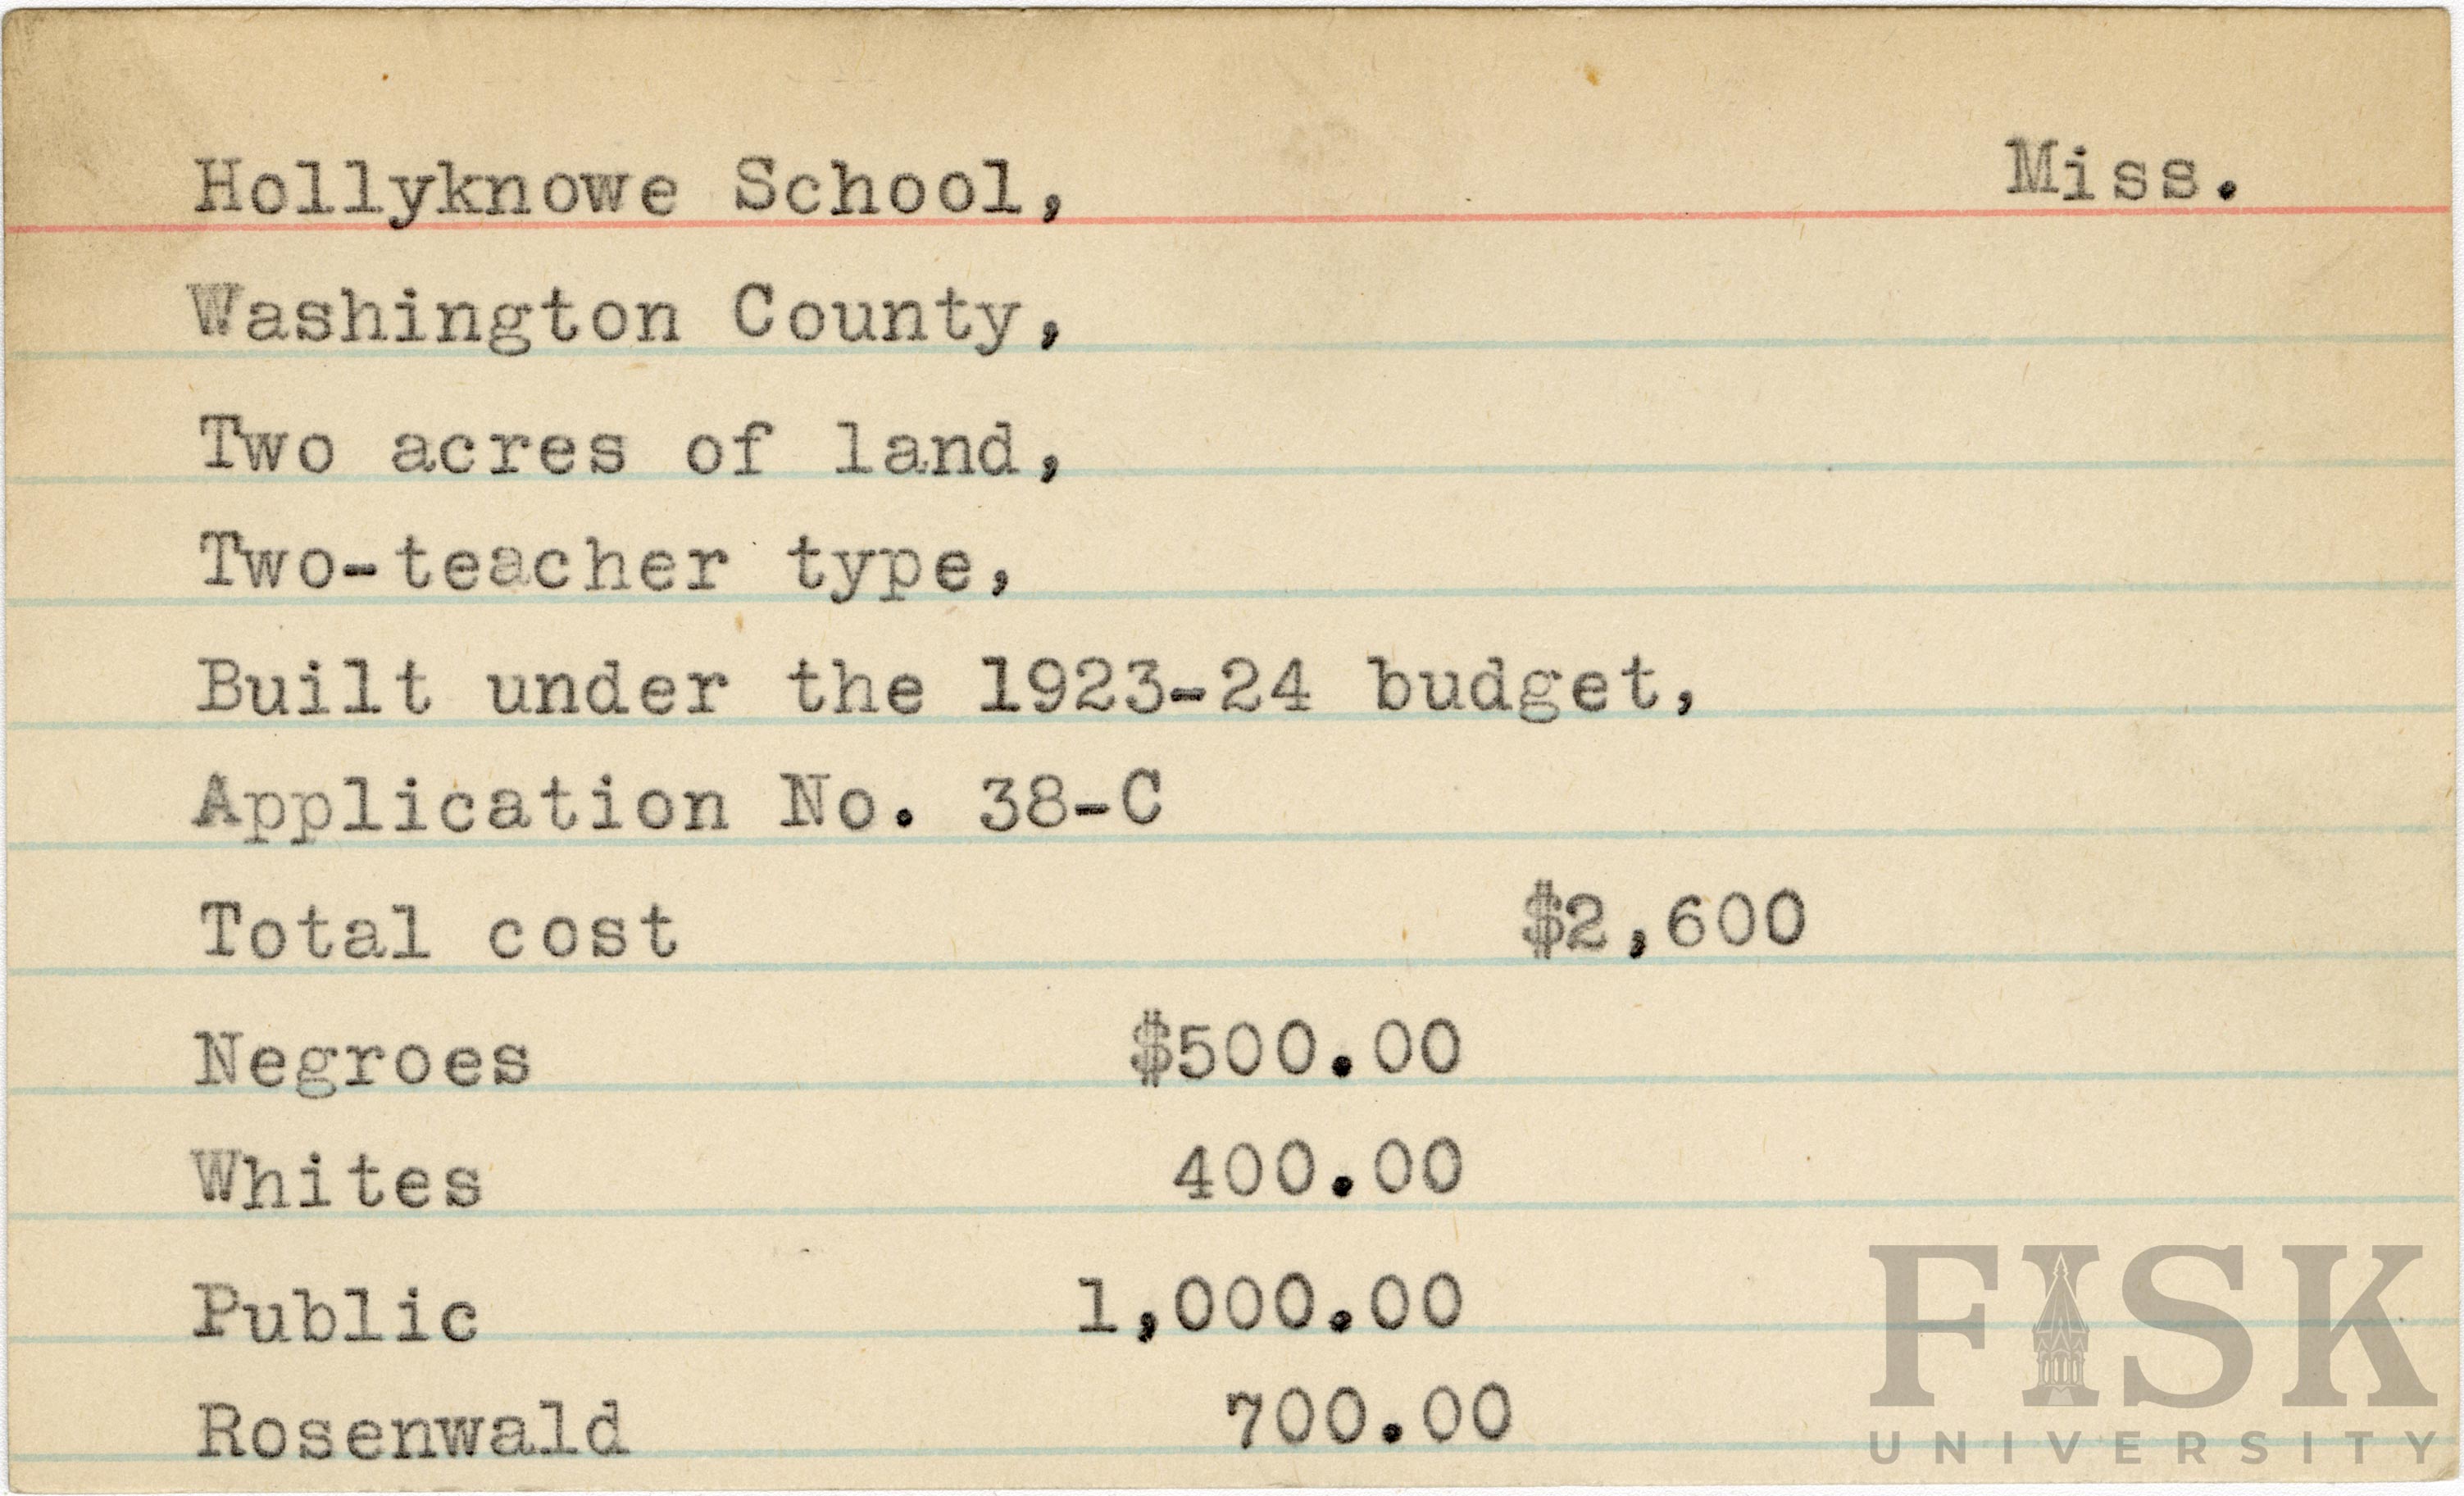 Hollyknowe School, Miss.
Washington County,
Two acres of land,
Two-teacher type,
Built under the 1923-24 budget,
Application No. 38-C
Total cost $2,600
Negroes $500.00
Whites 400.00
Public 1,000.00
Rosenwald 700.00
FISK
UNIVERSITY